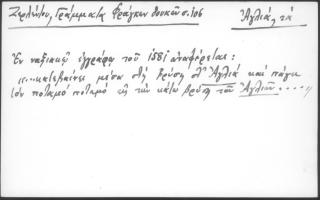 Ζερλέντου, Γράμματα Φράγκων δουκῶν σ. 106
Ἀγλιά, τά
Ἐν ναξιακῷ ἐγγράφῳ τοῦ 1581 ἀναφέρεται:
«...κατεβαίνει μέσα στή βρύση στ' Ἀγλιά καί πάγει
τόν ποταμό ποταμό εἰς τήν κάτω βρύση τοῦ Ἀγλιοῦ....»